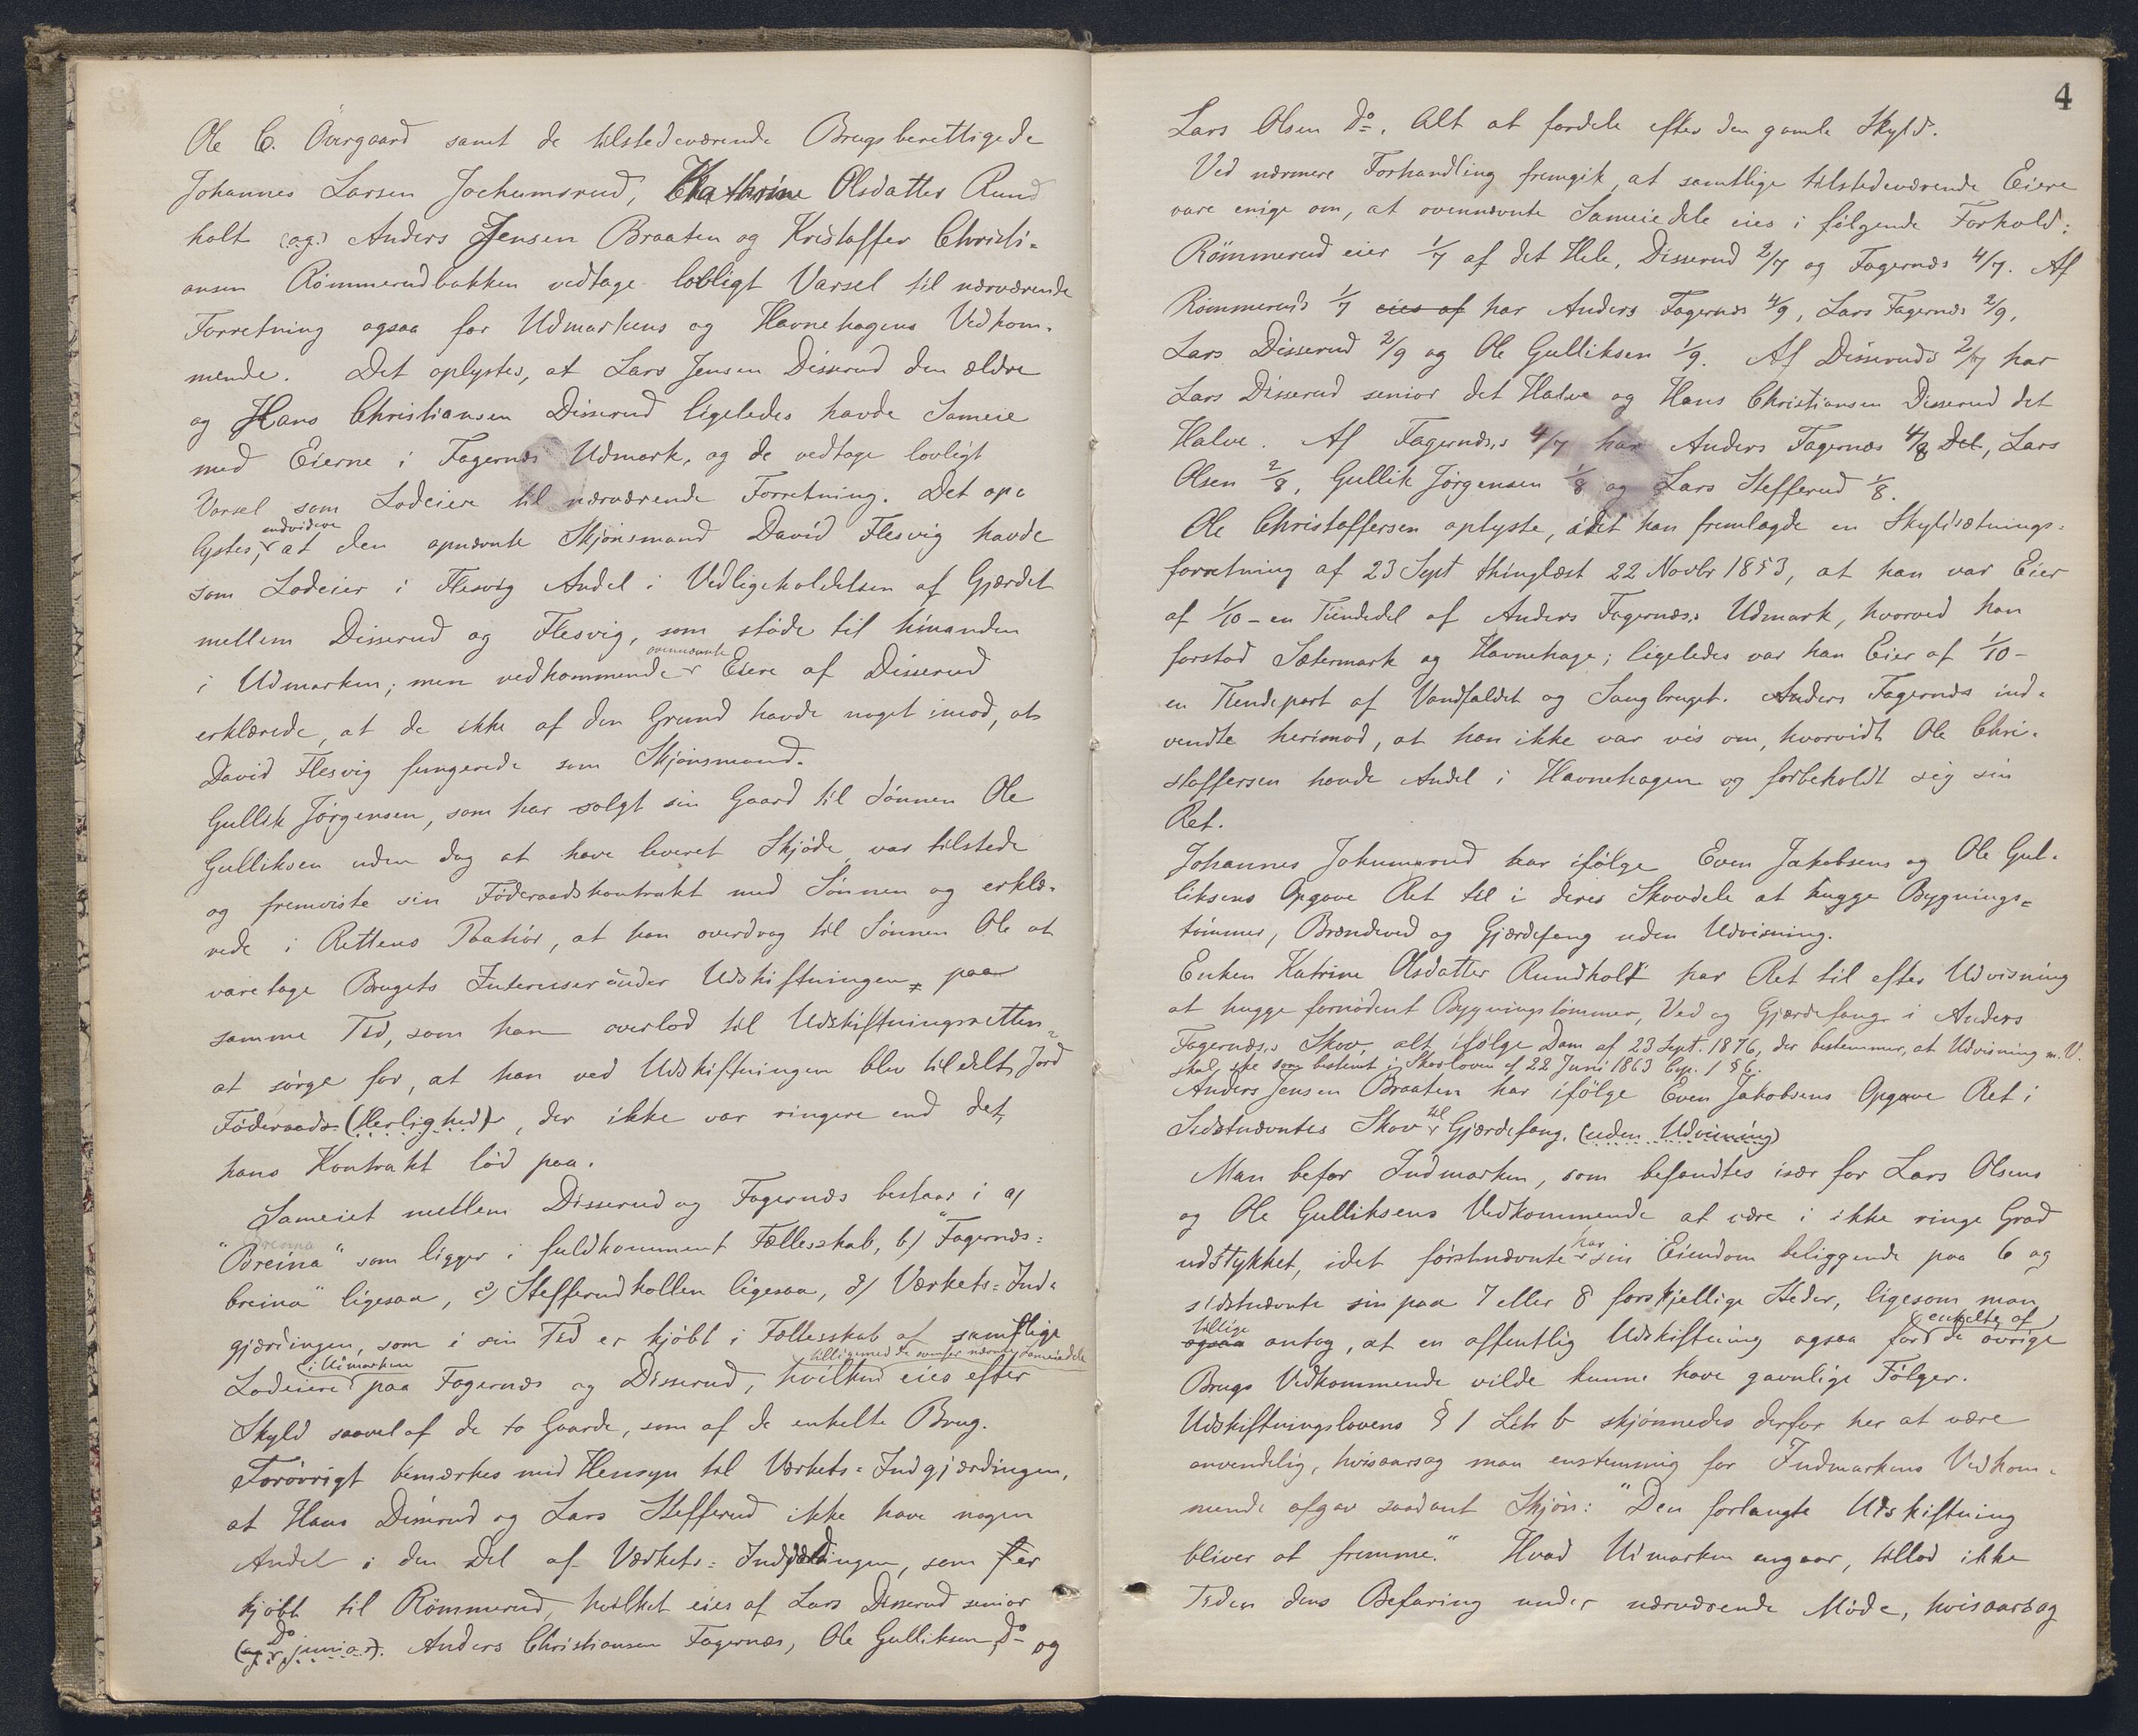 Ole C. Övergaard samt de tilstedeværende Brugsberettigede
Johannes Larsen Jochumsrud, Kathrine Olsdatter Rund
holt (og) Anders Jensen Braaten og Kristoffer Christi-
ansen Römmerudbakken vedtage lovligt Varsel til nærværende
Forretning ogsaa for Udmarkens og Havnehagens Vedkom-
mende. Det oplystes, at Lars Jensen Disserud den ældre
og Hans Christiansen Disserud ligeledes havde Sameie
med Eierne i Fagernæs Udmark, og de vedtage lovligt
Varsel som Lodeiere til nærværende Forretning. Det op-
endvidere
lystes, at den opnævnte Skjönsmand David Flesvig havde
som Lodeier i Flesvig Andel i Vedligeholdelsen af Gjærdet
mellem Disserud og Flesvig, som støde til hinanden
ovennævnte
i Udmarken; men vedkommende Eiere af Disserud
erklærede, at de ikke af den Grund havde noget imod, at
David Flesvig fungerede som Skjönsmand.
Gullik Jörgensen, som har solgt sin Gaard til Sönnen Ole
Gulliksen uden dog at have leveret Skjöde, var tilstede
og fremviste sin Föderaadskontrakt med Sönnen og erklæ-
rede i Rettens Paahör, at han overdrog til Sönnen Ole at
varetage Brugets Interesser under Udskiftningen, paa
samme Tid, som han overlod til Udskiftningsretten
at sörge for, at han ved Udskiftningen blev tildelt Jord
Föderaads (Herlighed), der ikke var ringere end det,
hans Kontrakt löd paa.
Sameiet mellem Disserud og Fagernæs bestaar i a)
Breina
"Breina" som ligger i fuldkomment Fællesskab, b) "Fagernæs-
breina" ligesaa, c) Stefferudkollen ligesaa, d) Værkets-Ind-
gjærdingen, som i sin Tid er kjöbt i Fællesskab af samtlige
i Udmarken tilligemed de ovenfor nævnte Sameiedele
Lodeiere paa Fagernæs og Disserud, hvilken eies efter
Skyld saavel af de to Gaarde, som af de enkelte Brug.
Forövrigt bemærkes med Hensyn til Værkets-Indgjærdingen,
at Hans Disserud og Lars Stefferud ikke have nogen
Andel i den Del af Værkets-Indgjærdingen, som er
kjöbt til Römmerud, hvilket eies af Lars Disserud senior
Do
(og junior). Anders Christiansen Fagernæs, Ole Gulliksen Do og
4
Lars Olsen Do. Alt at fordele efter den gamle Skyld.
Ved nærmere Forhandling fremgik, at samtlige tilstedeværende Eiere
vare enige om, at ovennævnte Sameiedele eies i fölgende Forhold:
Römmerud eier 1/7 af det Hele, Disserud 2/7 og Fagernæs 4/7. Af
Römmeruds 1/7 eies af har Anders Fagernæs 4/9, Lars Fagernæs 2/9,
Lars Disserud 2/9 og Ole Gulliksen 1/9. Af Disseruds 2/7 har
Lars Disserud senior det Halve og Hans Christiansen Disserud det
Halve. Af Fagernæs's 4/7 har Anders Fagernæs 4/8 Del, Lars
Olsen 2/8, Gullik Jörgensen 1/8 og Lars Stefferud 1/8.
Ole Christoffersen oplyste, idet han fremlagde en Skyldsætnings-
forretning af 23 Sept thinglæst 22 Novbr 1853, at han var Eier
af 1/10 - en Tiendedel af Anders Fagernæs's Udmark, hvorved han
forstod Sætermark og Havnehage; ligeledes var han Eier af 1/10 -
en Tiendepart af Vandfaldet og Saugbruget. Anders Fagernæs ind-
vendte herimod, at han ikke var vis om, hvorvidt Ole Chri-
stoffersen havde Andel i Havnehagen og forbeholdt sig sin
Ret.
Johannes Jokumsrud har ifölge Even Jakobsens og Ole Gul-
liksens Opgave Ret til i deres Skovdele at hugge Bygnings-
tömmer, Brændeved og Gjærdefang uden Udvisning.
Enken Katrine Olsdatter Rundholt har Ret til efter Udvisning
at hugge fornödent Bygningstömmer, Ved og Gjærdefang i Anders
Fagernæs's Skov, alt ifölge Dom af 23 Sept. 1876, der bestemmer, at Udvisning m. V.
skal ske som bestemt i Skovloven af 22 Juni 1863 Cap. 1 § 6.
Anders Jensen Braaten har ifölge Even Jakobsens Opgave Ret i
til
Sidstnævntes Skov Gjærdefang. (uden Udvisning)
Man befor Indmarken, som befandtes især for Lars Olsens
og Ole Gulliksens Vedkommende at være i ikke ringe Grad
har
udstykket, idet förstnævnte sin Eiendom beliggende paa 6 og
sidstnævnte sin paa 7 eller 8 forskjellige Steder, ligesom man
tillige enkelte af
ogsaa antog, at en offentlig Udskiftning ogsaa for de övrige
Brugs Vedkommende vilde kunne have gavnlige Fölger.
Udskiftningslovens § 1 Litr b skjönnedes derfor her at være
anvendelig, hvisaarsag man enstemmig for Indmarkens Vedkom-
mende afgav saadant Skjön: "Den forlangte Udskiftning
bliver at fremme." Hvad Udmarken angaar, tillod ikke
Tiden dens Befaring under nærværende Möde, hvisaarsag